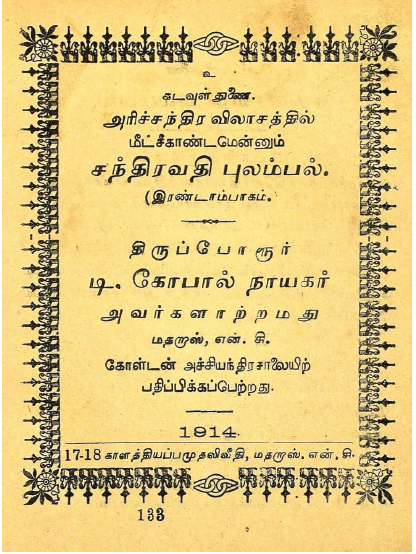 உ
கடவுள் துணை.
அரிச்சந்திர விலாசத்தில்
மீட்சிகாண்டமென்னும்
சந்திரவதி புலம்பல்.
(இரண்டாம்பாகம்.
திருப்போரூர்
டி. கோபால் நாயகர்
அவர்களாற்றமது
மதறாஸ், என். சி.
கோள்டன் அச்சியந்திரசாலையிற்
பதிப்பிக்கப்பெற்றது.
1914.
17-18 காளத்தியப்பமுதலிவீதி, மதறாஸ். என். சி.
133